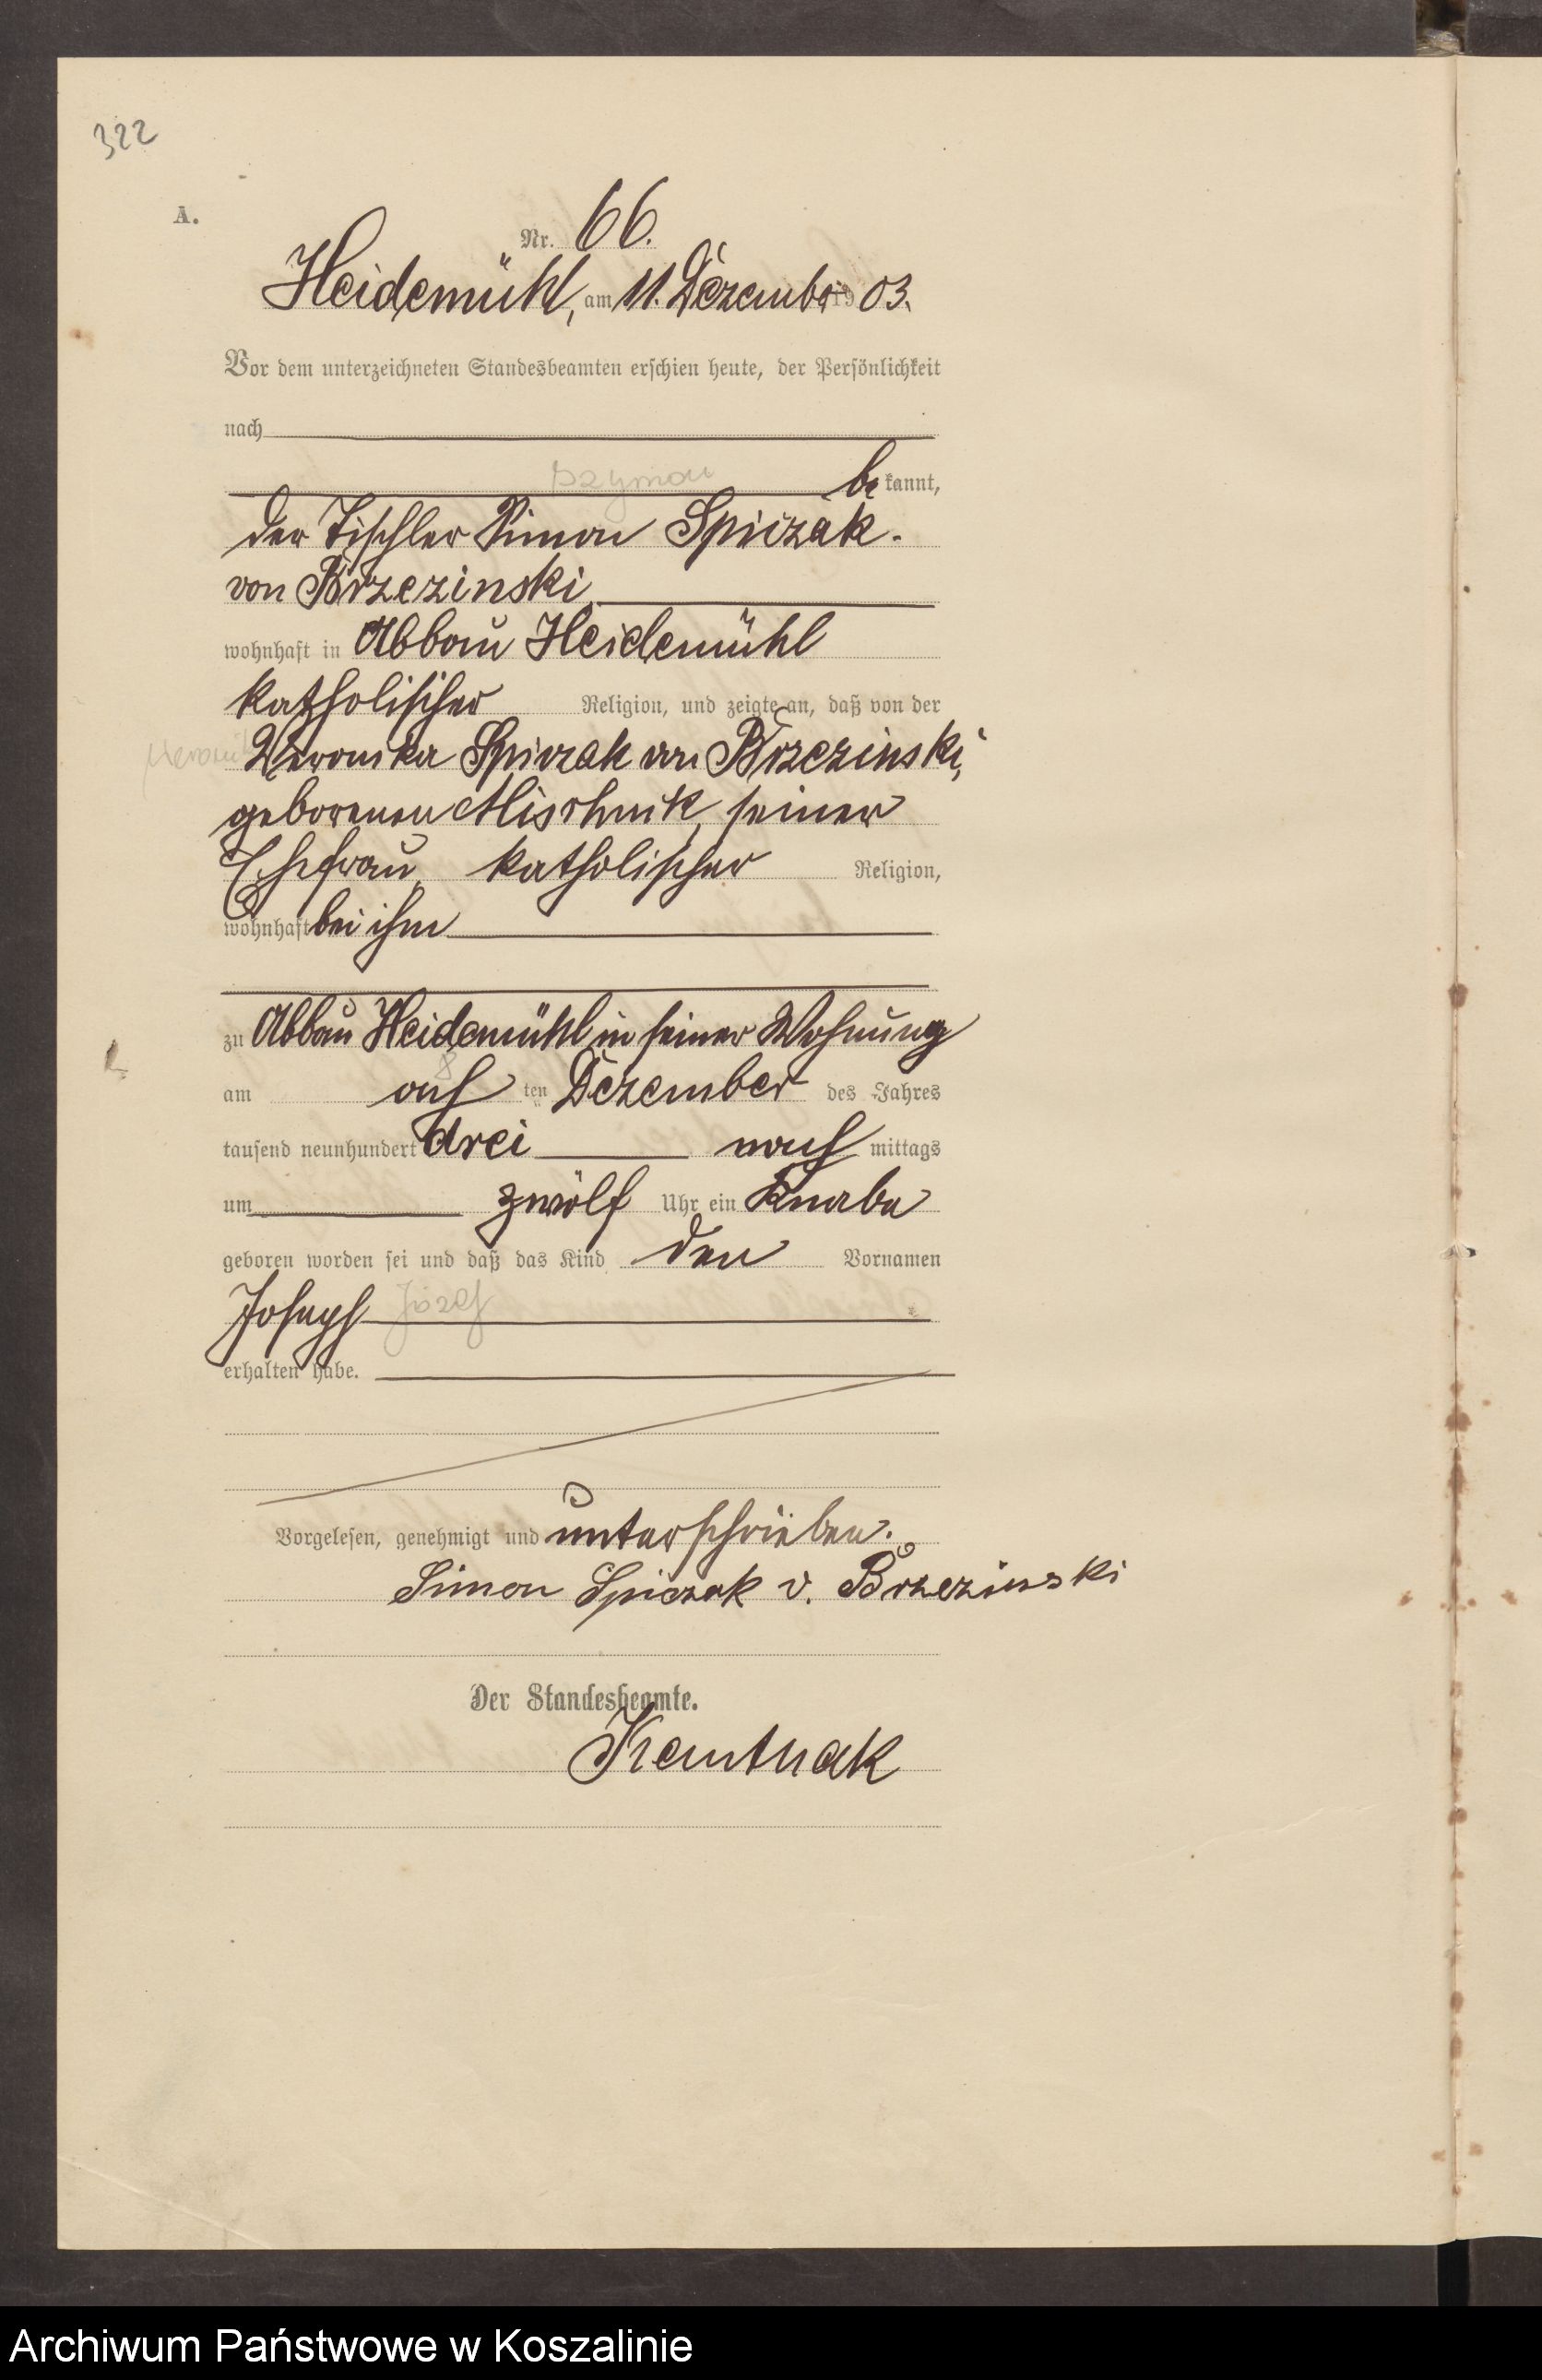 322
A.
Nr. 66.
Heidemühl, am 11. Dezember 1903.
Vor dem unterzeichneten Standesbeamten erschien heute, der Persönlichkeit
nach
Szymon
be kannt,
der Tischler Simon Spiczak
von Brzezinski
wohnhaft in Abbau Heidemühl
katholischer Religion, und zeigte an, daß von der
Weronika Spiczak von Brzezinski,
geborenen Mischnik, seiner
Ehefrau, katholischer Religion,
wohnhaft bei ihm
zu Abbau Heidemühl in seiner Wohnung
8
am acht ten Dezember des Jahres
tausend neunhundert drei nach mittags
um zwölf Uhr ein Knabe
geboren worden sei und daß das Kind den Vornamen
Joseph Józef
erhalten habe.
Vorgelesen, genehmigt und unterschrieben.
Simon Spiczak v. Brzezinski
Der Standesbeamte.
Archiwum Państwowe w Koszalinie